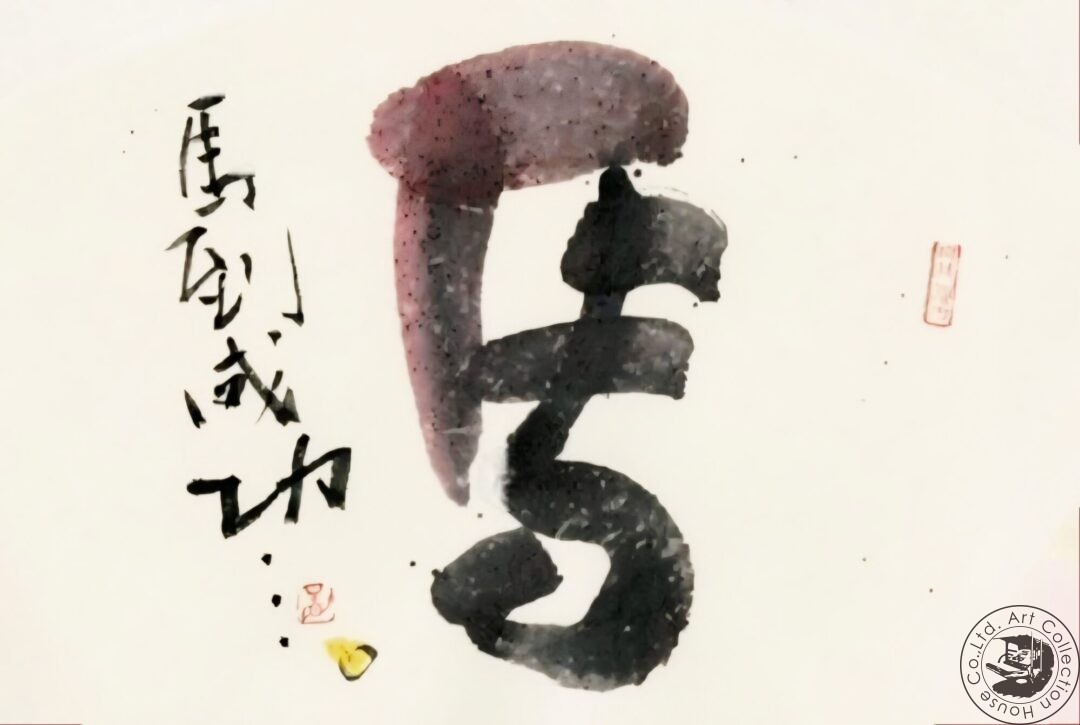 馬
馬到成功
Art Collection House Co.,Ltd.